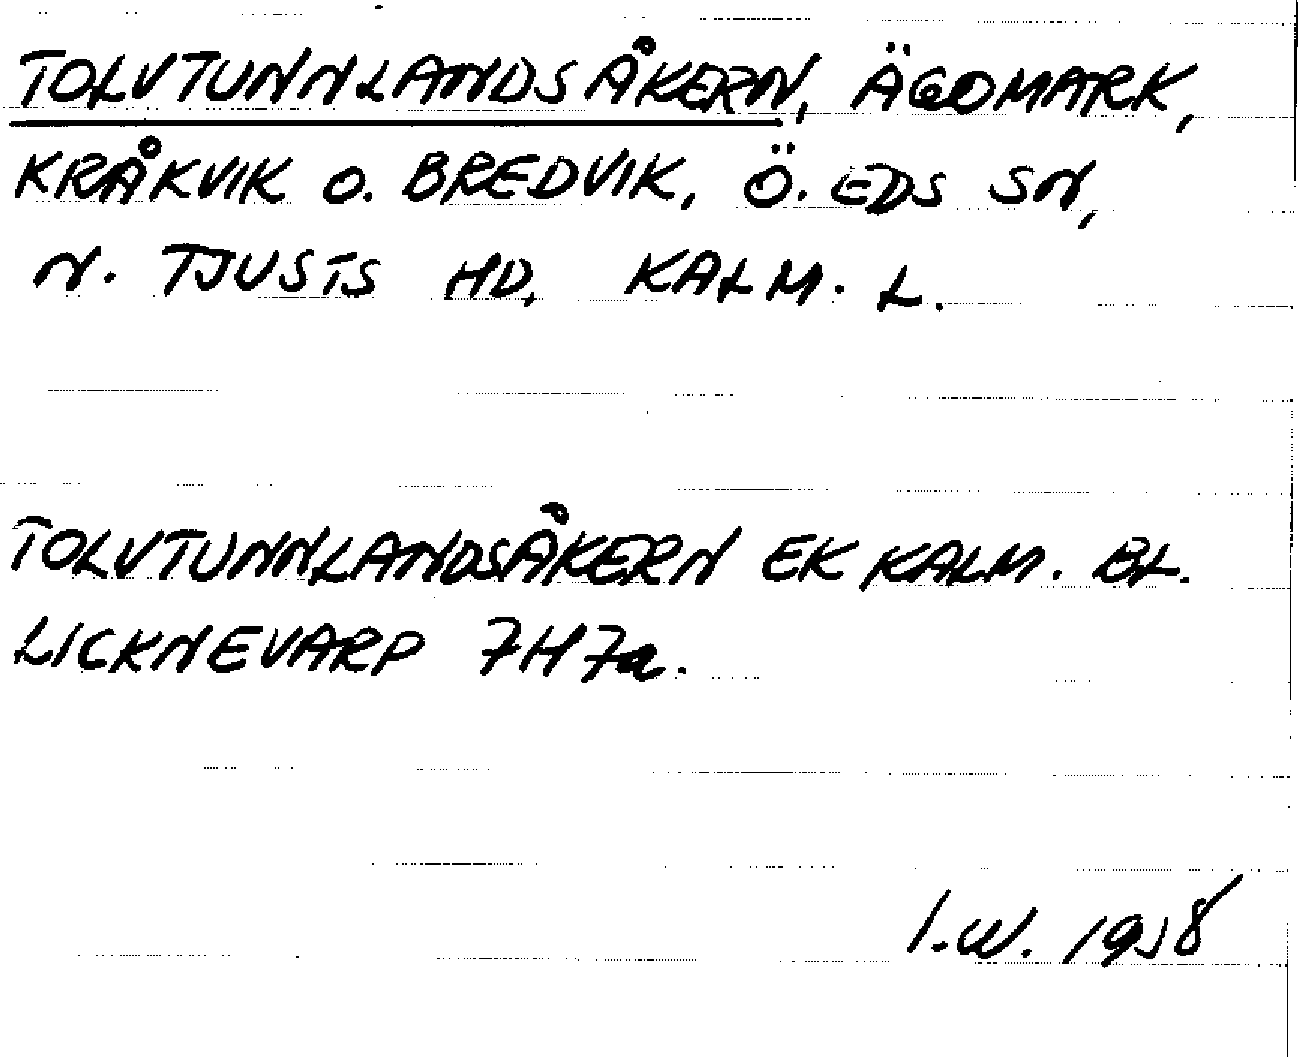 TOLVTUNNLANDSÅKERN, ÄGOMARK,
KRÅKVIK O. BREDVIK, Ö. EDS SN,
N. TJUSTS HD, KALM. L.
TOLVTUNNLANDSÅKERN EK KALM. BL.
LICKNEVARP 7H7a.
I.W.